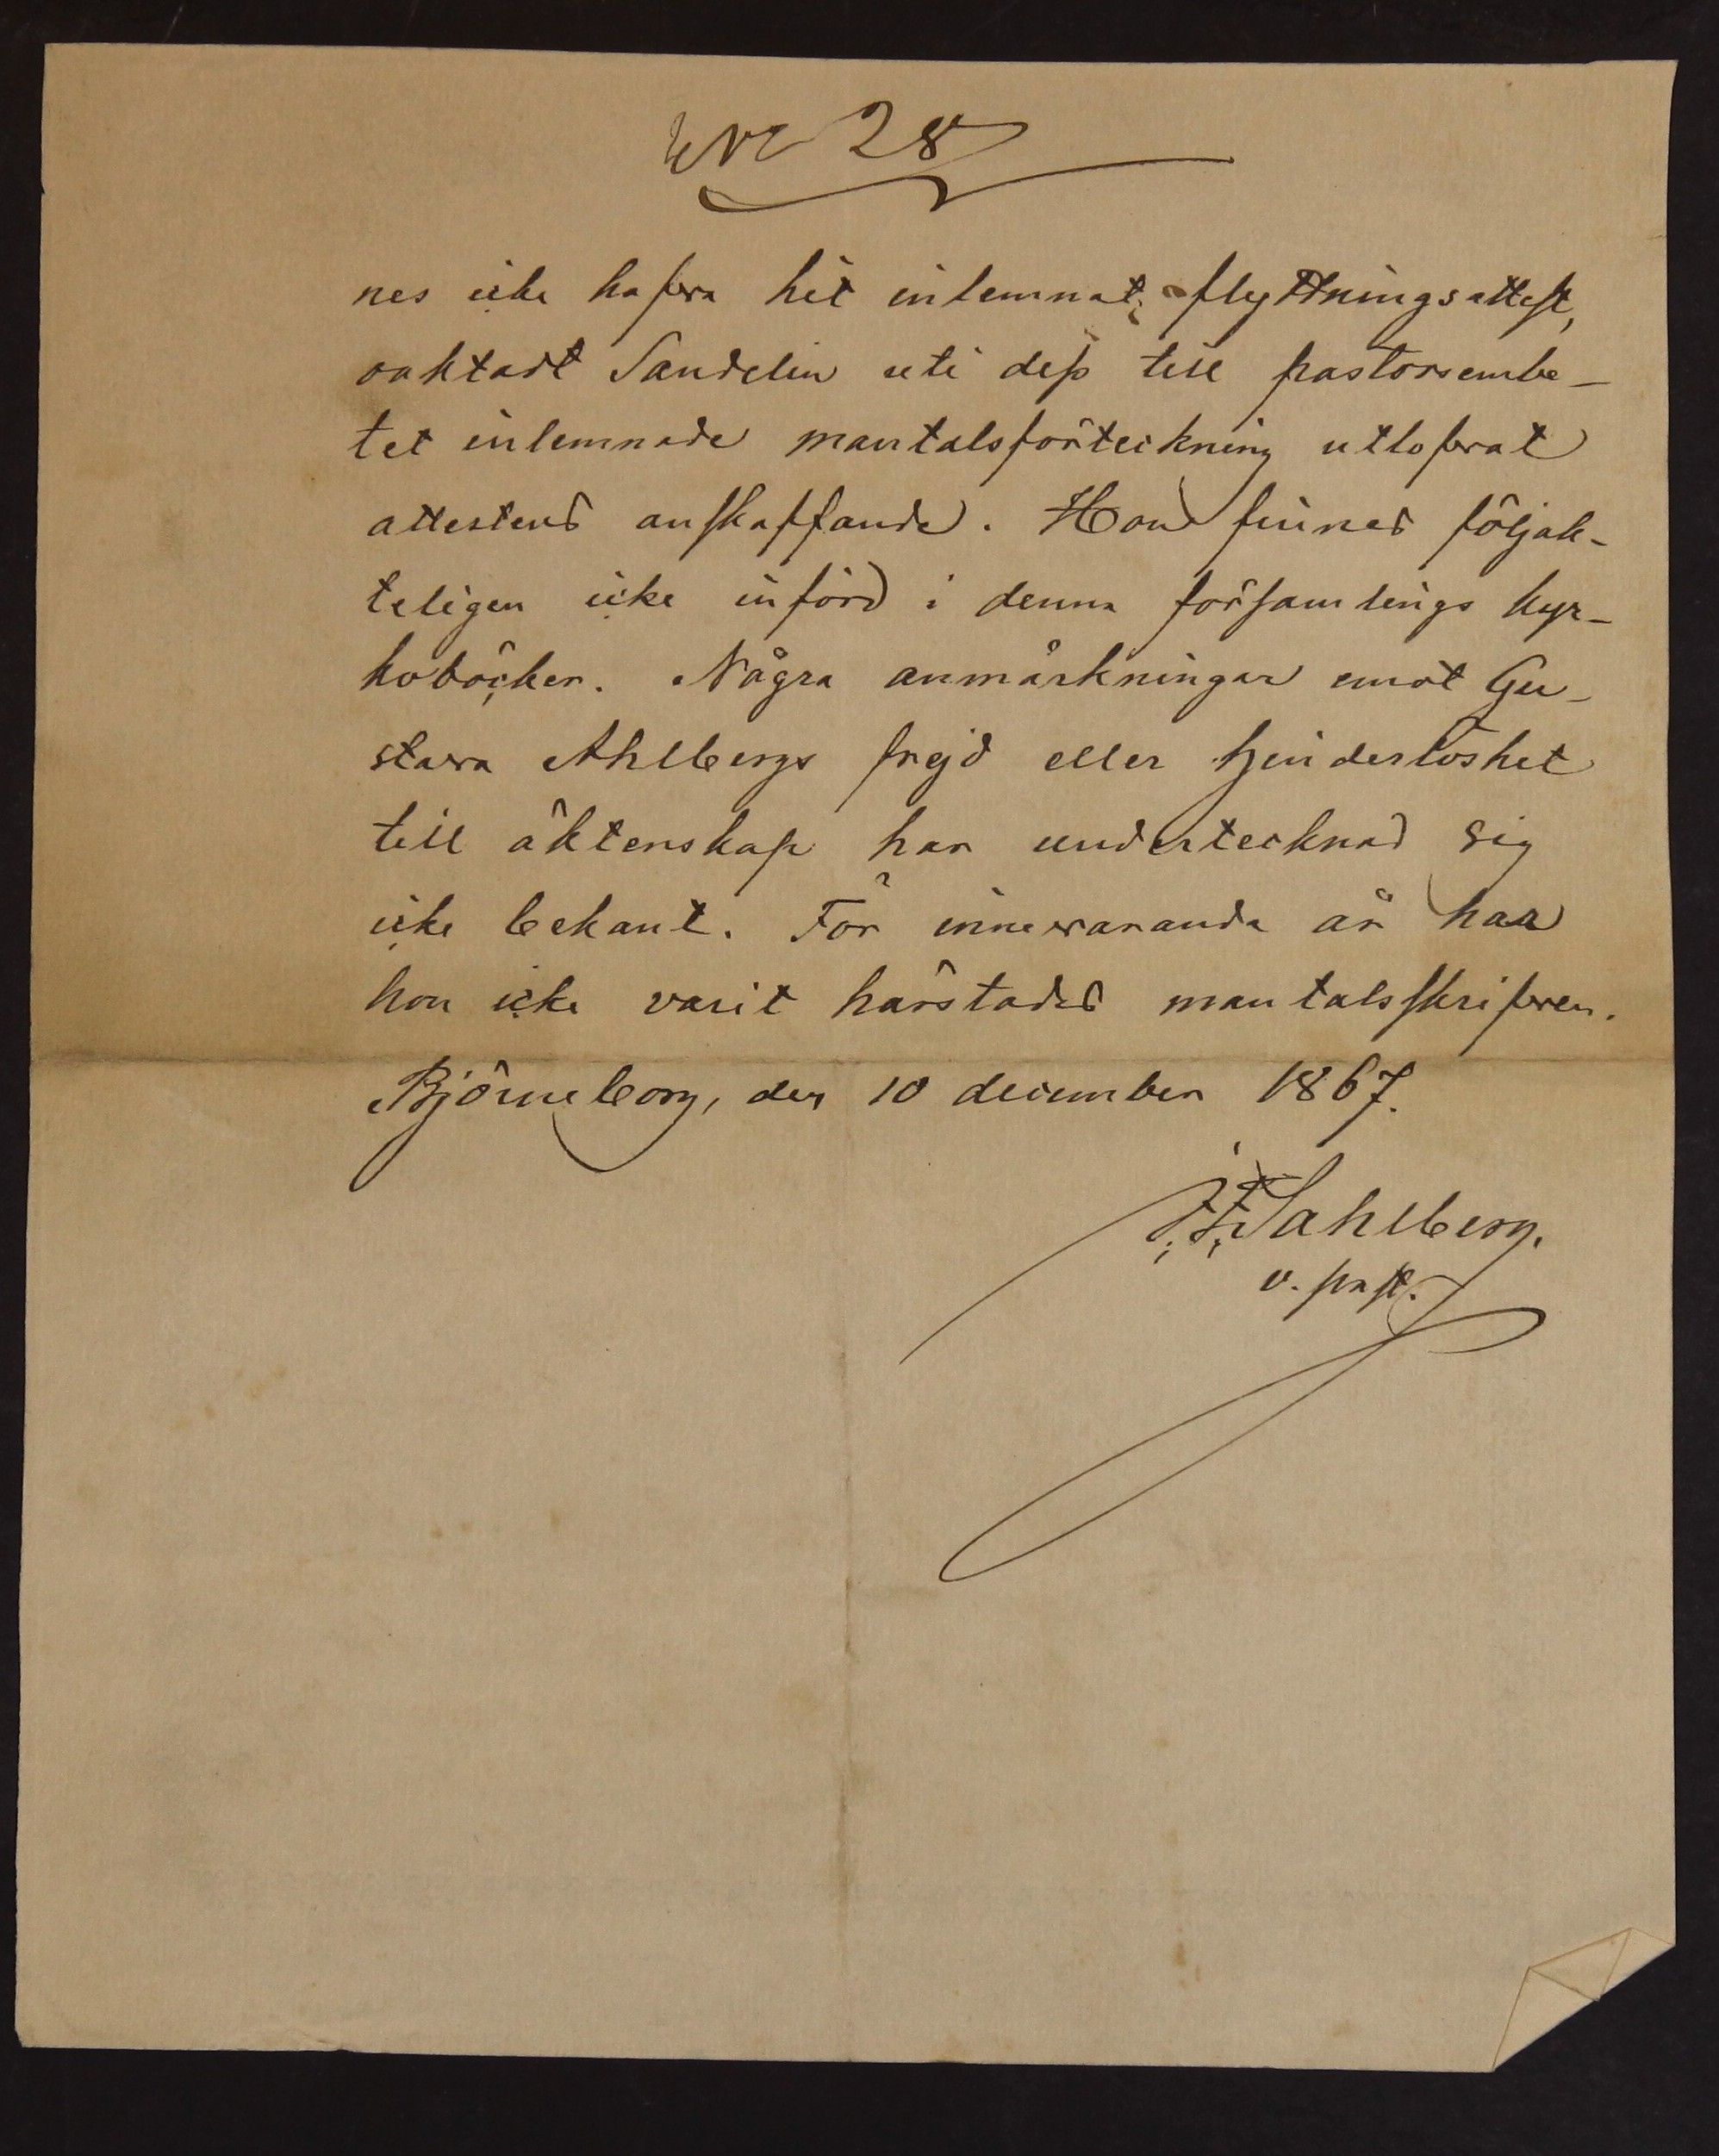 28
nes icke hafva hit inlemnat flyttningsattest,
oaktadt Sandelin uti dess till pastorsembe-
tet inlemnade mantalsförteckning utlofvat
attestens anskaffande. Hon finnes följak-
teligen icke införd i denna församlings kyr-
koböcker. Några anmärkningar emot Gu-
stava Ahlbergs frejd eller hinderlöshet
till äktenskap har undertecknad sig
icke bekant. För innevarande år har
hon icke varit härstädes mantalsskrifven.
Björneborg, den 10 december 1867.
Sahlberg.
v. past.